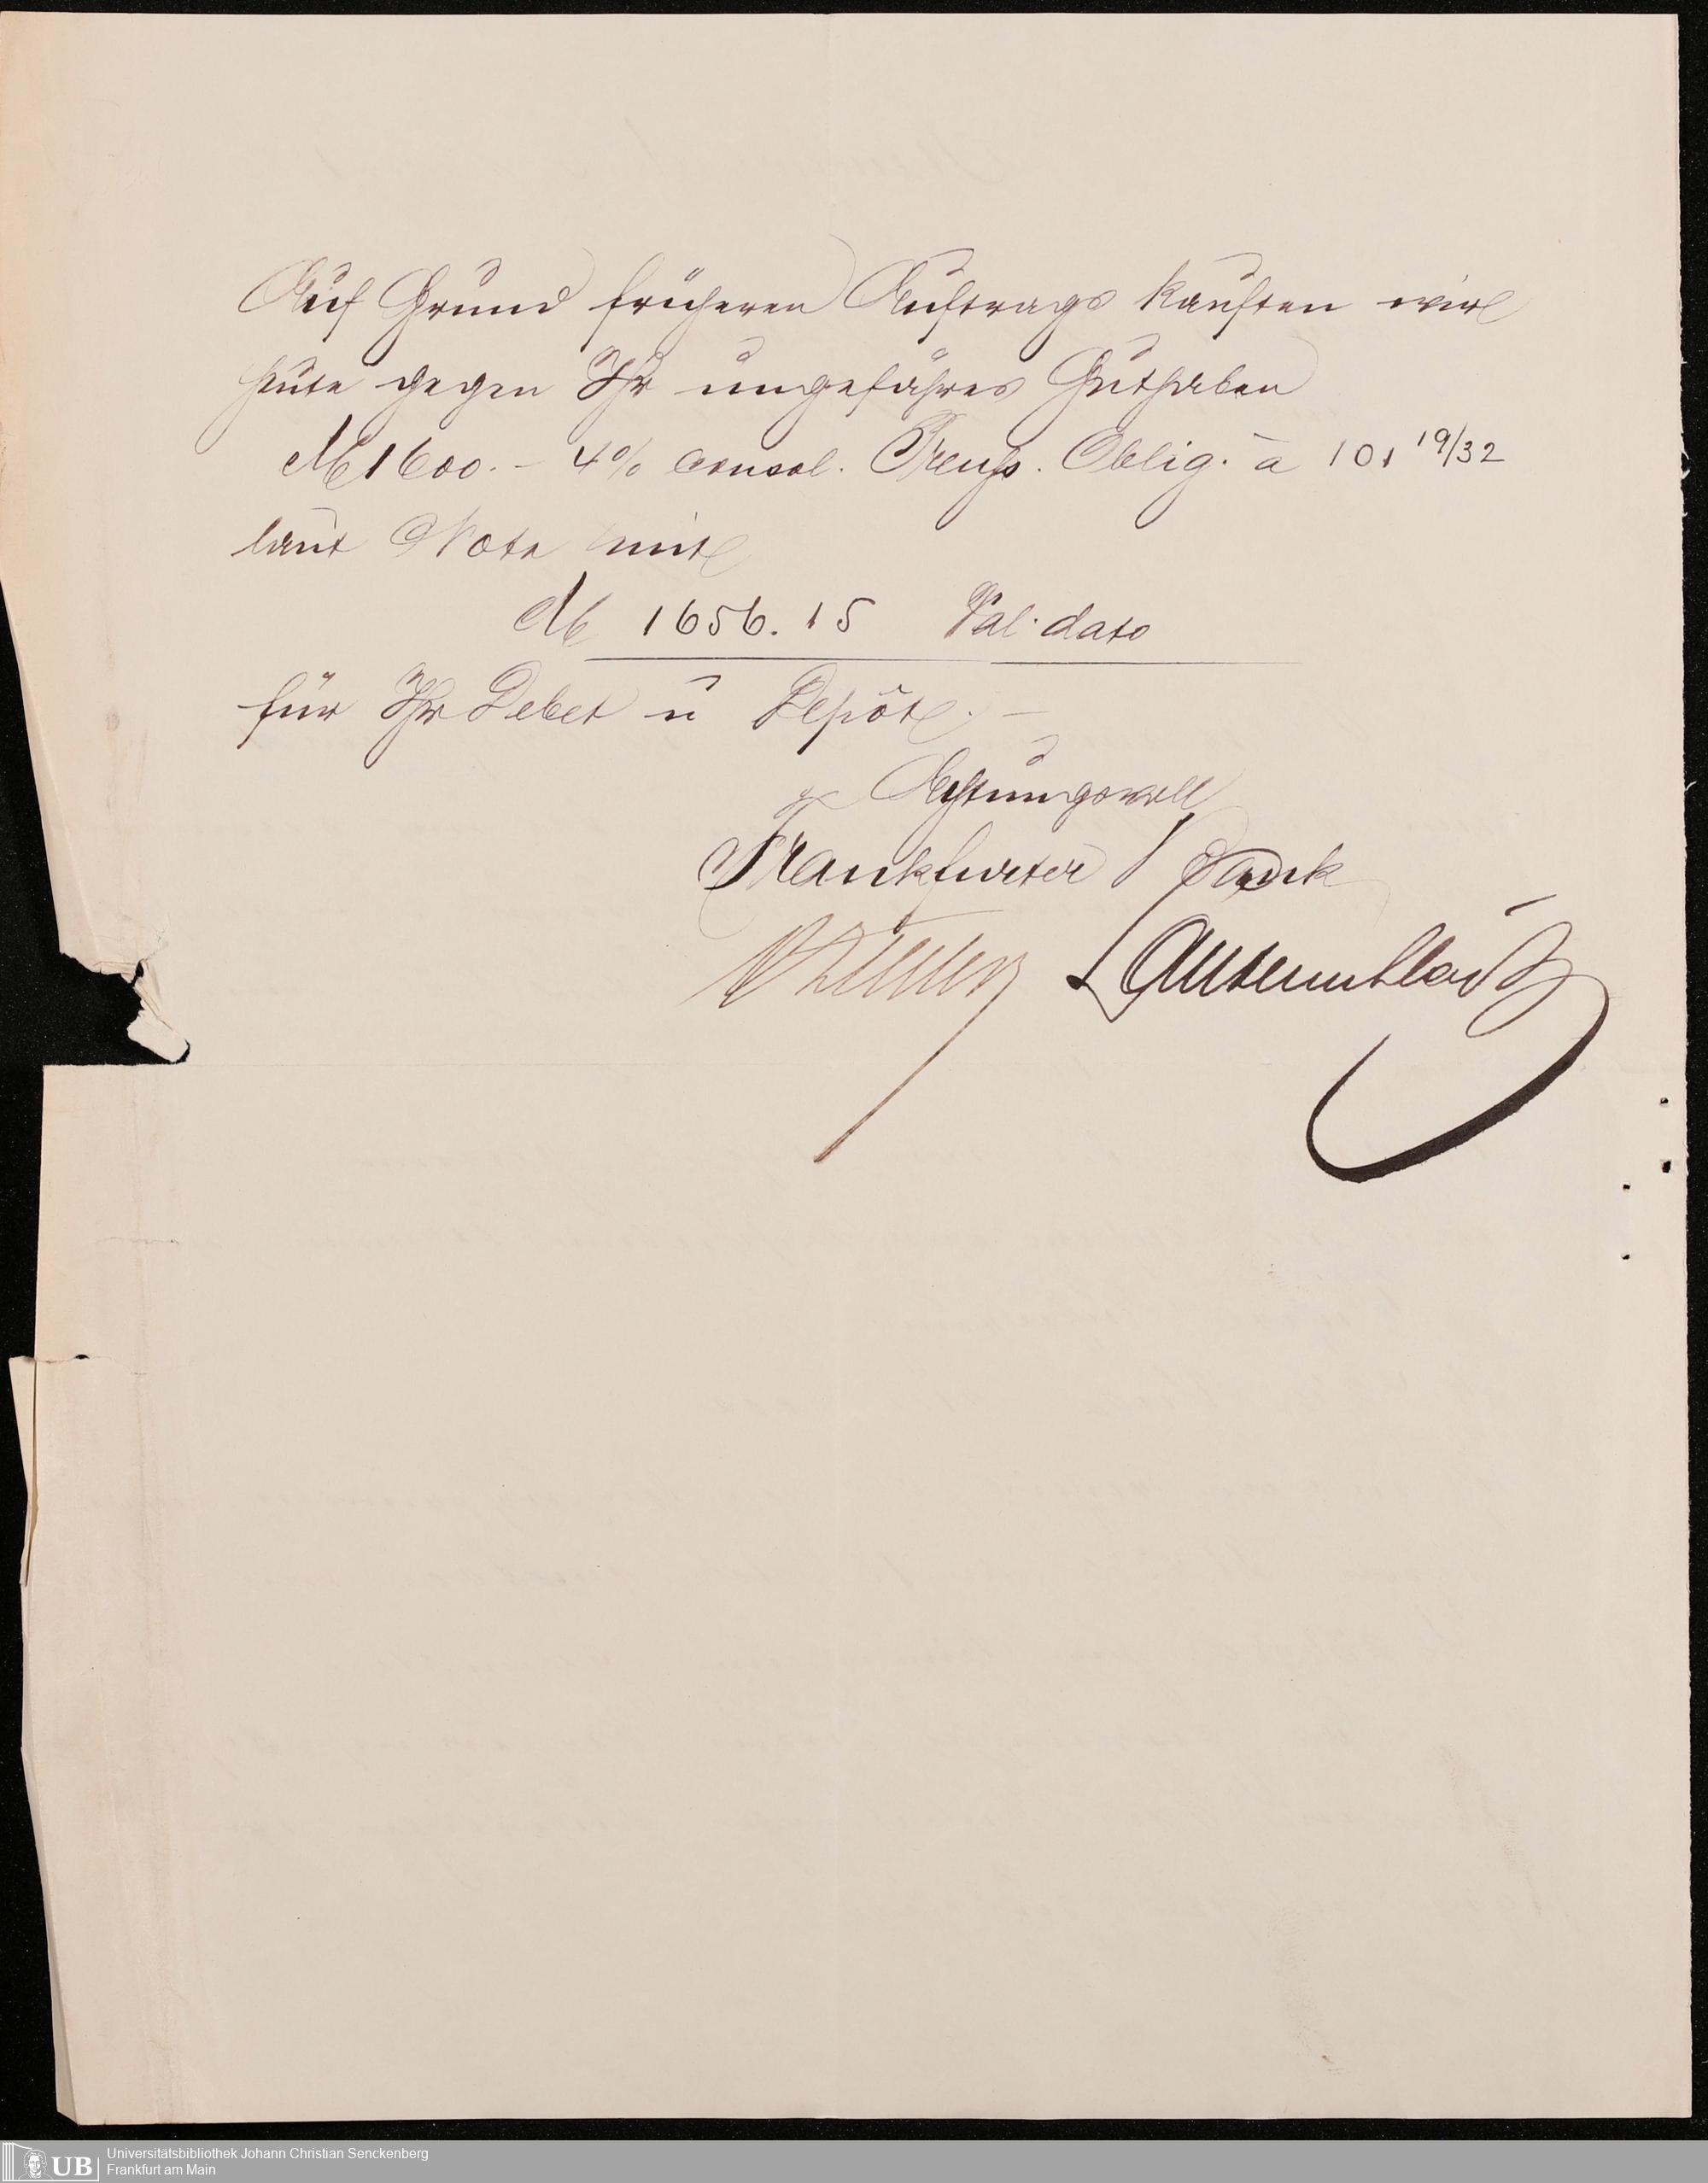 Auf Grund früheren Auftrags kauften wir
heute gegen Ihr ungefähres Guthaben
M 1600. – 4% consol. Preuß. Oblig. à 101 19/32
laut Nota mit
M 1656. 15 Val. dato
für Ihr Debet u Depôt. –
Achtungsvoll
Frankfurter Bank
Lautenschläger
UB
Universitätsbibliothek Johann Christian Senckenberg
Frankfurt am Main